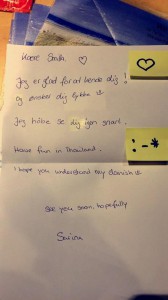 Kære Sarah ♡
Jeg er glad for at kende dig!
og ønsker dig lykke
Jeg håbe se dig igen snart.
Have fun in Thailand.
I hope you understand my danish
See you soon, hopefully
:-*